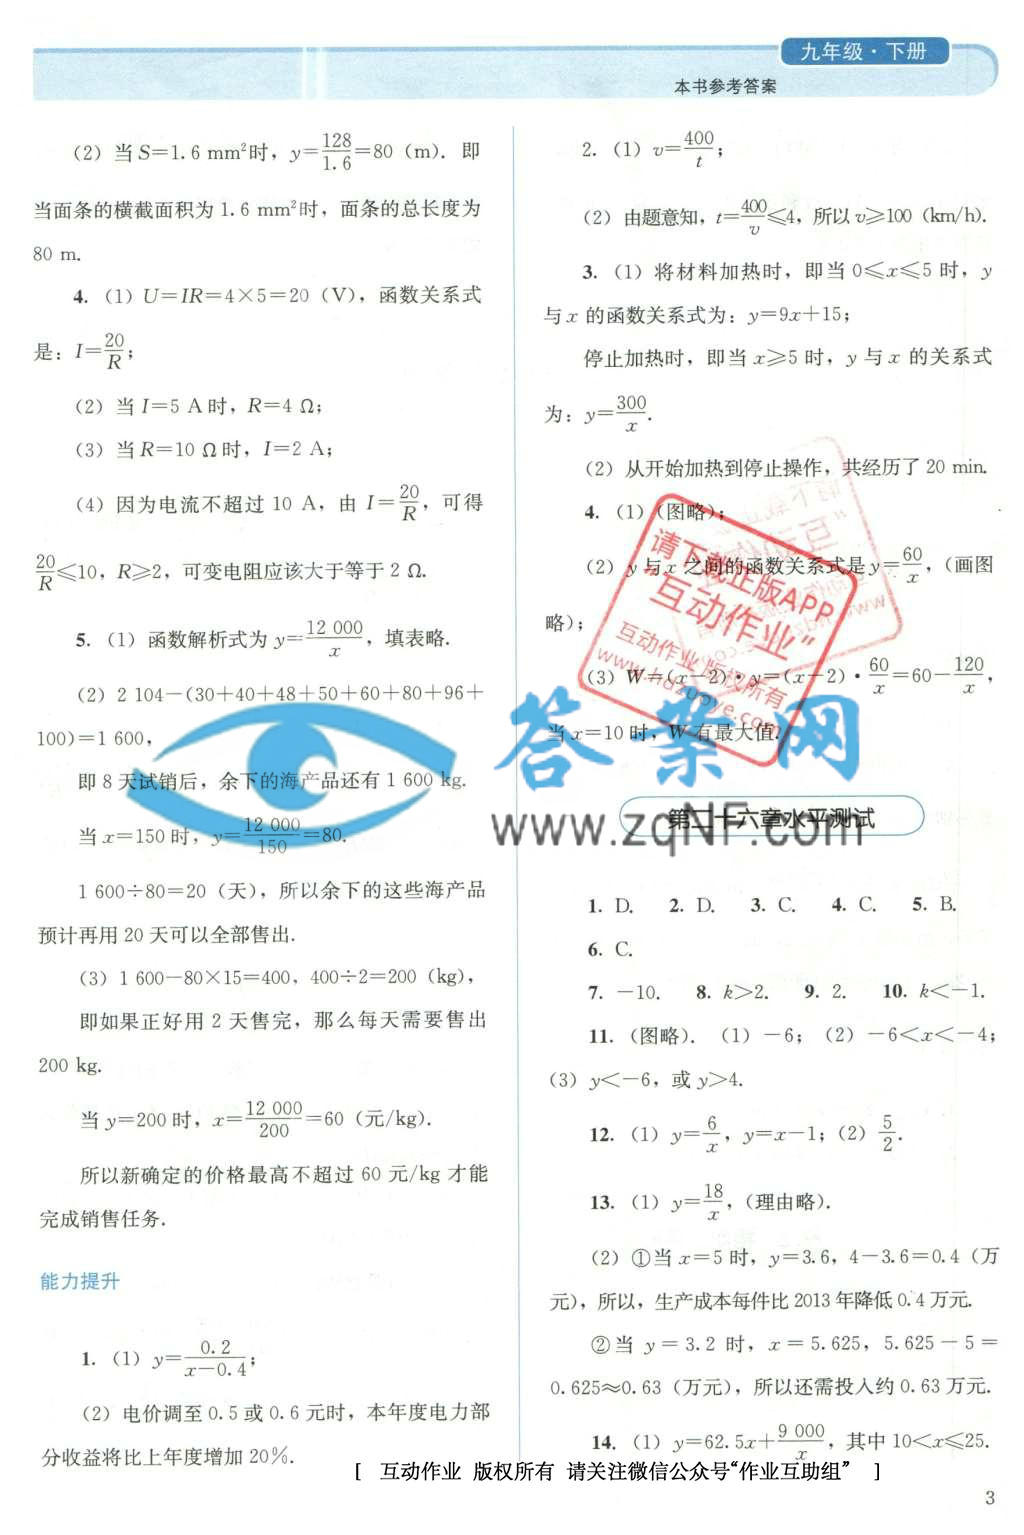 九年级·下册
本书参考答案
(2) 当S=1.6 mm²时，y=128/1.6=80 (m). 即
当面条的横截面积为 1.6 mm²时，面条的总长度为
80 m.
4. (1) U=IR=4×5=20 (V)，函数关系式
是：I=20/R；
(2) 当 I=5 A 时，R=4 Ω；
(3) 当 R=10 Ω 时，I=2 A；
(4) 因为电流不超过 10 A，由 I=20/R，可得
20/R≤10，R≥2，可变电阻应该大于等于 2 Ω.
5. (1) 函数解析式为 y=12 000/x，填表略.
(2) 2 104-(30+40+48+50+60+80+96+
100)=1 600，
即 8 天试销后，余下的海产品还有 1 600 kg.
当 x=150 时，y=12 000/150=80.
1 600÷80=20 (天)，所以余下的这些海产品
预计再用 20 天可以全部售出.
(3) 1 600-80×15=400，400÷2=200 (kg)，
即如果正好用 2 天售完，那么每天需要售出
200 kg.
当 y=200 时，x=12 000/200=60 (元/kg).
所以新确定的价格最高不超过 60 元/kg 才能
完成销售任务.
能力提升
1. (1) y=0.2/(x-0.4)；
(2) 电价调至 0.5 或 0.6 元时，本年度电力部
分收益将比上年度增加 20%.
2. (1) v=400/t；
(2) 由题意知，t=400/v≤4，所以 v≥100 (km/h).
3. (1) 将材料加热时，即当 0≤x≤5 时，y
与 x 的函数关系式为：y=9x+15；
停止加热时，即当 x≥5 时，y 与 x 的关系式
为：y=300/x.
(2) 从开始加热到停止操作，共经历了 20 min.
4. (1) (图略)；
(2) y 与 x 之间的函数关系式是 y=60/x，(画图
略)；
(3) W=(x-2)·y=(x-2)·60/x=60-120/x，
当 x=10 时，W 有最大值.
请下载正版APP
"互动作业"
互动作业 版权所有
www.hdzuoye.com
答案网
www.zqNF.com
第二十六章水平测试
1. D. 2. D. 3. C. 4. C. 5. B.
6. C.
7. -10. 8. k>2. 9. 2. 10. k<-1.
11. (图略). (1) -6；(2) -6<x<-4；
(3) y<-6，或 y>4.
12. (1) y=6/x，y=x-1；(2) 5/2.
13. (1) y=18/x，(理由略).
(2) ①当 x=5 时，y=3.6，4-3.6=0.4 (万
元)，所以，生产成本每件比 2013 年降低 0.4 万元.
②当 y=3.2 时，x=5.625，5.625-5=
0.625≈0.63 (万元)，所以还需投入约 0.63 万元.
14. (1) y=62.5x+9 000/x，其中 10<x≤25.
[ 互动作业 版权所有 请关注微信公众号"作业互助组" ]
3